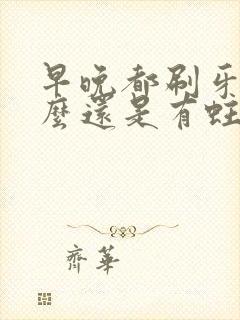 早晚都刷牙
麼還是有蛀
齊華